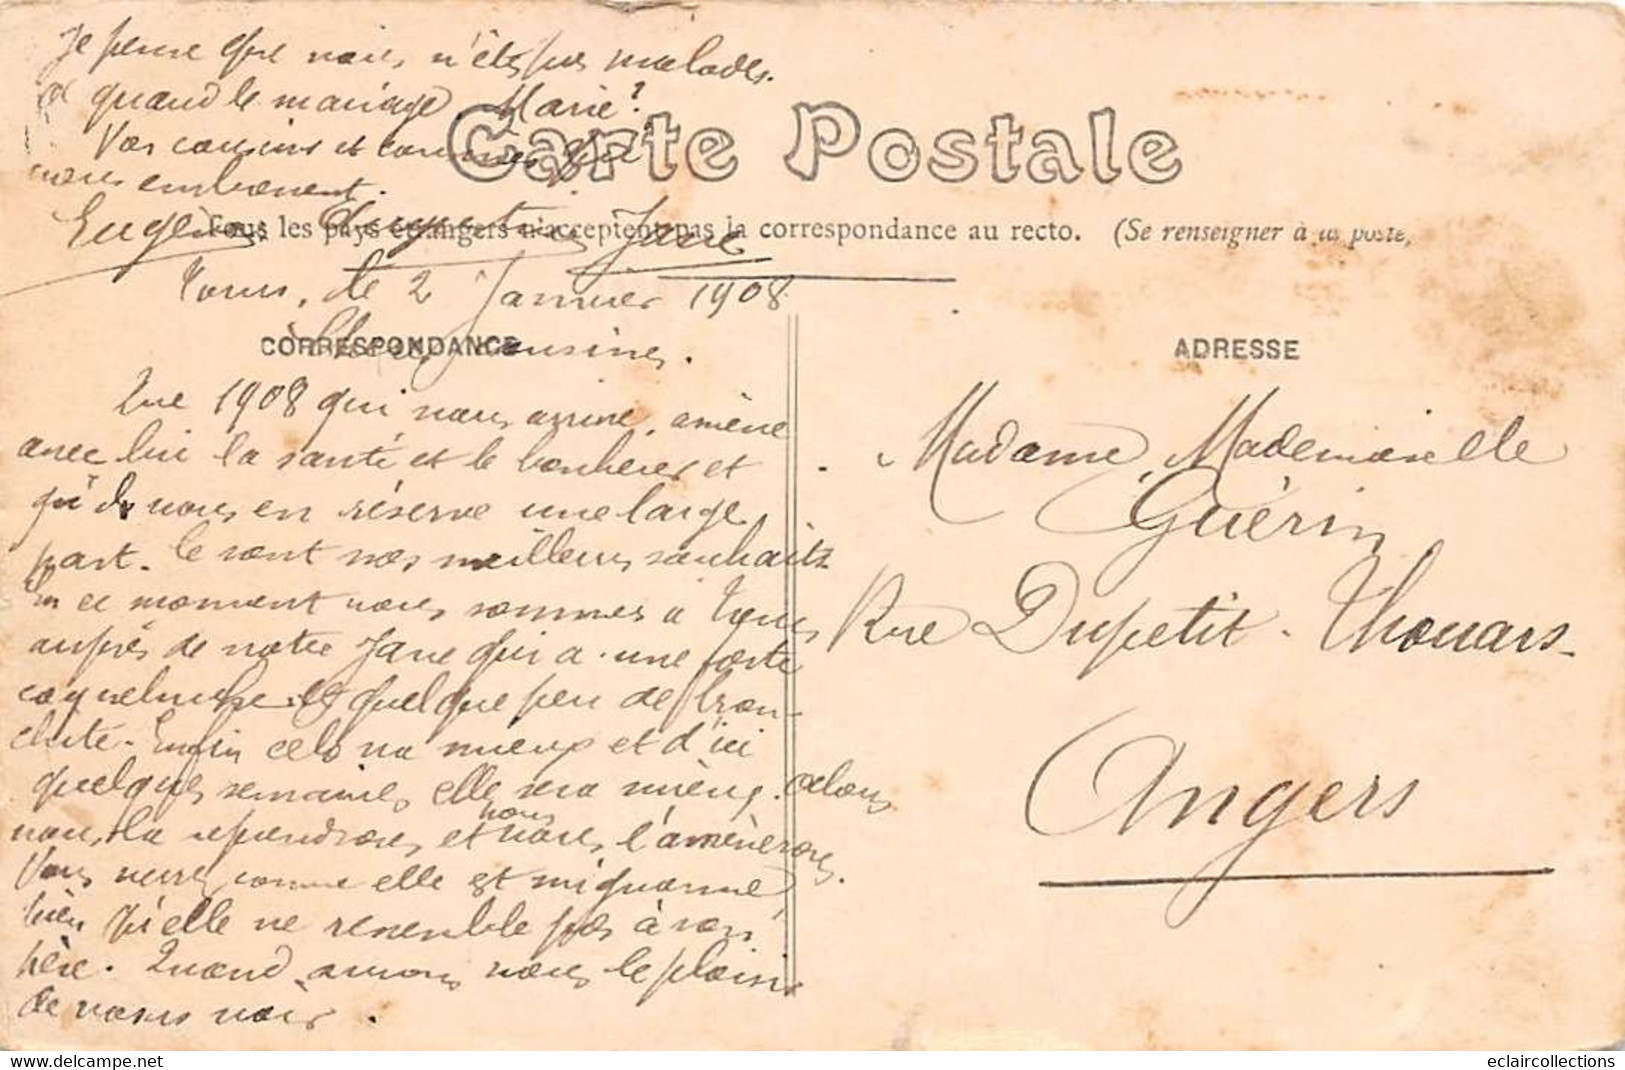 Je pense que vous n'êtes pas malades.
Et quand le mariage, Marie?
Vos cousins et cousines qui
vous embrassent.
Eugène Jane
Carte Postale
Tous les pays étrangers n'acceptent pas la correspondance au recto. (Se renseigner à la poste,
Tours, le 2 Janvier 1908
CORRESPONDANCE
Chères Cousines.
Que 1908 qui nous arrive, amène
avec lui la santé et le bonheur et
qu'il vous en réserve une large
part. Ce sont nos meilleurs souhaits
En ce moment nous sommes à Tours
auprès de notre Jane qui a une forte
coqueluche et quelque peu de bron-
chite. Enfin cela va mieux et d'ici
quelques semaines elle sera mieux. Alors
nous la reprendrons et nous vous l'amènerons.
Vous verrez comme elle est mignonne,
bien qu'elle ne ressemble pas à son
père. Quand aurons nous le plaisir
de vous voir.
ADRESSE
Madame, Mademoiselle
Guérin
Rue Dupetit-Thouars-
Angers
www.delcampe.net
eclaircollections